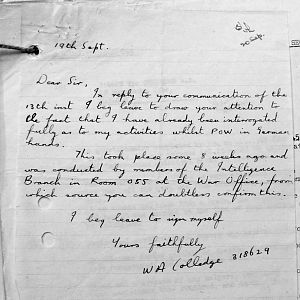 20 Sep.
19th Sept.
Dear Sir,
In reply to your communication of the
13th inst I beg leave to draw your attention to
the fact that I have already been interrogated
fully as to my activities whilst PoW in German
hands.
This took place some 8 weeks ago and
was conducted by members of the Intelligence
Branch in Room 055 at the War Office, from
which source you can doubtless confirm this.
I beg leave to sign myself
Yours faithfully
W A Colledge 318629